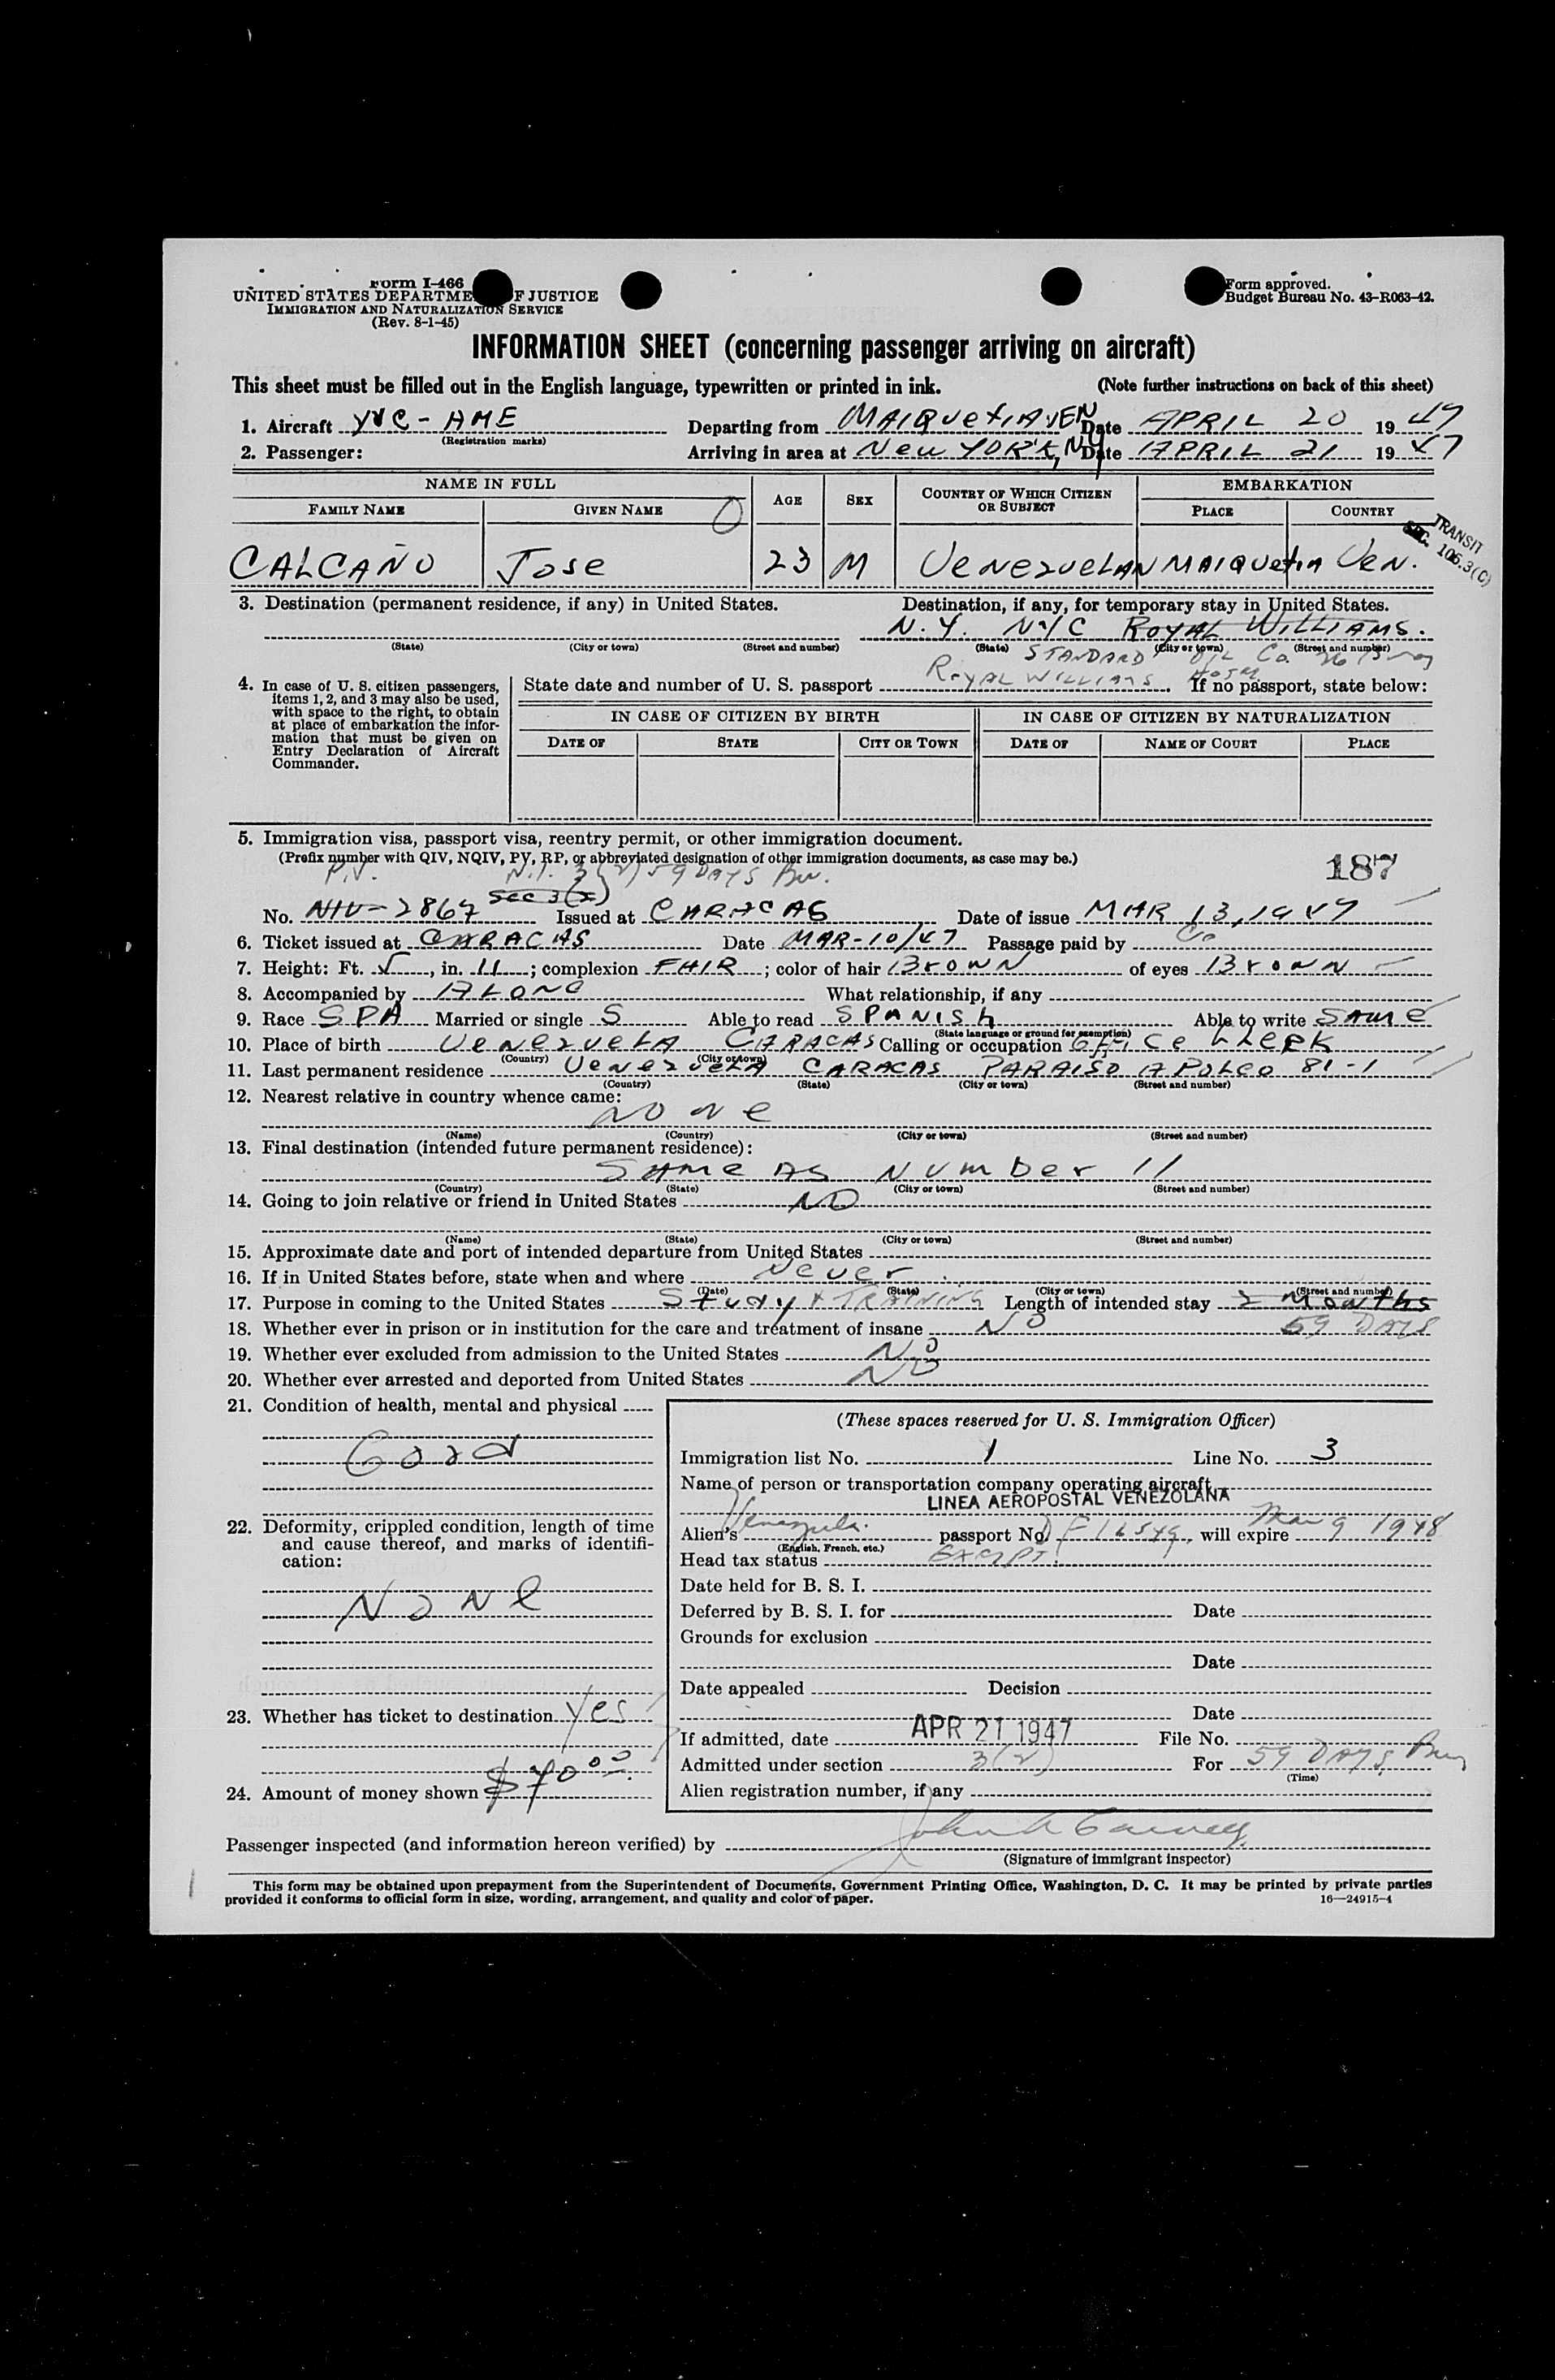 Form I-466
UNITED STATES DEPARTME F JUSTICE
IMMIGRATION AND NATURALIZATION SERVICE
(Rev. 8-1-45)
Form approved.
Budget Bureau No. 43-R063-42.
INFORMATION SHEET (concerning passenger arriving on aircraft)
This sheet must be filled out in the English language, typewritten or printed in ink. (Note further instructions on back of this sheet)
1. Aircraft YVC-AME Departing from MAIQUETIA VEN Date APRIL 20 1947
(Registration marks)
2. Passenger: Arriving in area at New YORK, NY Date APRIL 21 1947
NAME IN FULL AGE SEX COUNTRY OF WHICH CITIZEN OR SUBJECT EMBARKATION
FAMILY NAME GIVEN NAME PLACE COUNTRY
TRANSIT
SEC. 106.3(C)
CALCAÑO Jose 23 M VeNezueLAN MAIQUetIA VeN.
3. Destination (permanent residence, if any) in United States. Destination, if any, for temporary stay in United States.
N.Y. NYC ROYAL WILLIAMS.
(State) (City or town) (Street and number) (State) (City or town) (Street and number)
STANDARD OIL Co. 26 Bway
ROYAL WILLIAMS
4. In case of U. S. citizen passengers, items 1, 2, and 3 may also be used, with space to the right, to obtain at place of embarkation the information that must be given on Entry Declaration of Aircraft Commander.
State date and number of U. S. passport If no passport, state below:
IN CASE OF CITIZEN BY BIRTH IN CASE OF CITIZEN BY NATURALIZATION
DATE OF STATE CITY OR TOWN DATE OF NAME OF COURT PLACE
5. Immigration visa, passport visa, reentry permit, or other immigration document.
(Prefix number with QIV, NQIV, PV, RP, or abbreviated designation of other immigration documents, as case may be.)
187
P.V. 3(2) 59 DAYS
Sec 3(2)
No. NIV-2867 Issued at CARACAS Date of issue MAR 13, 1947
6. Ticket issued at CARACAS Date MAR-10/47 Passage paid by Co
7. Height: Ft. 5, in. 11; complexion FAIR; color of hair BrOWN of eyes BrOWN
8. Accompanied by ALONE What relationship, if any
9. Race SPA Married or single S Able to read SPANISh Able to write SAME
(State language or ground for exemption)
10. Place of birth VeNezueLA CARACAS Calling or occupation OFFICe CLeRK
(Country) (City or town)
11. Last permanent residence VeNezUeLA CARACAS PARAISO APOLEO 81-1
(Country) (State) (City or town) (Street and number)
12. Nearest relative in country whence came:
NONe
(Name) (Country) (City or town) (Street and number)
13. Final destination (intended future permanent residence):
SAMe AS NUmber 11
(Country) (State) (City or town) (Street and number)
14. Going to join relative or friend in United States NO
(Name) (State) (City or town) (Street and number)
15. Approximate date and port of intended departure from United States
16. If in United States before, state when and where Never
(Date) (State) (City or town) (Street and number)
17. Purpose in coming to the United States Study & TRAINING Length of intended stay 2 Months
18. Whether ever in prison or in institution for the care and treatment of insane NO 59 DAYS
19. Whether ever excluded from admission to the United States NO
20. Whether ever arrested and deported from United States NO
21. Condition of health, mental and physical
Good
22. Deformity, crippled condition, length of time and cause thereof, and marks of identification:
NoNe
23. Whether has ticket to destination Yes
24. Amount of money shown $70.00
(These spaces reserved for U. S. Immigration Officer)
Immigration list No. 1 Line No. 3
Name of person or transportation company operating aircraft
LINEA AEROPOSTAL VENEZOLANA
Alien's Venezuela passport No. F16549, will expire Mar 9 1948
(English, French, etc.)
Head tax status EXMPT.
Date held for B. S. I.
Deferred by B. S. I. for Date
Grounds for exclusion
Date
Date appealed Decision
Date
If admitted, date APR 21 1947 File No.
Admitted under section 3(2) For 59 DAYS
(Time)
Alien registration number, if any
Passenger inspected (and information hereon verified) by
(Signature of immigrant inspector)
This form may be obtained upon prepayment from the Superintendent of Documents, Government Printing Office, Washington, D. C. It may be printed by private parties
provided it conforms to official form in size, wording, arrangement, and quality and color of paper. 16—24915-4